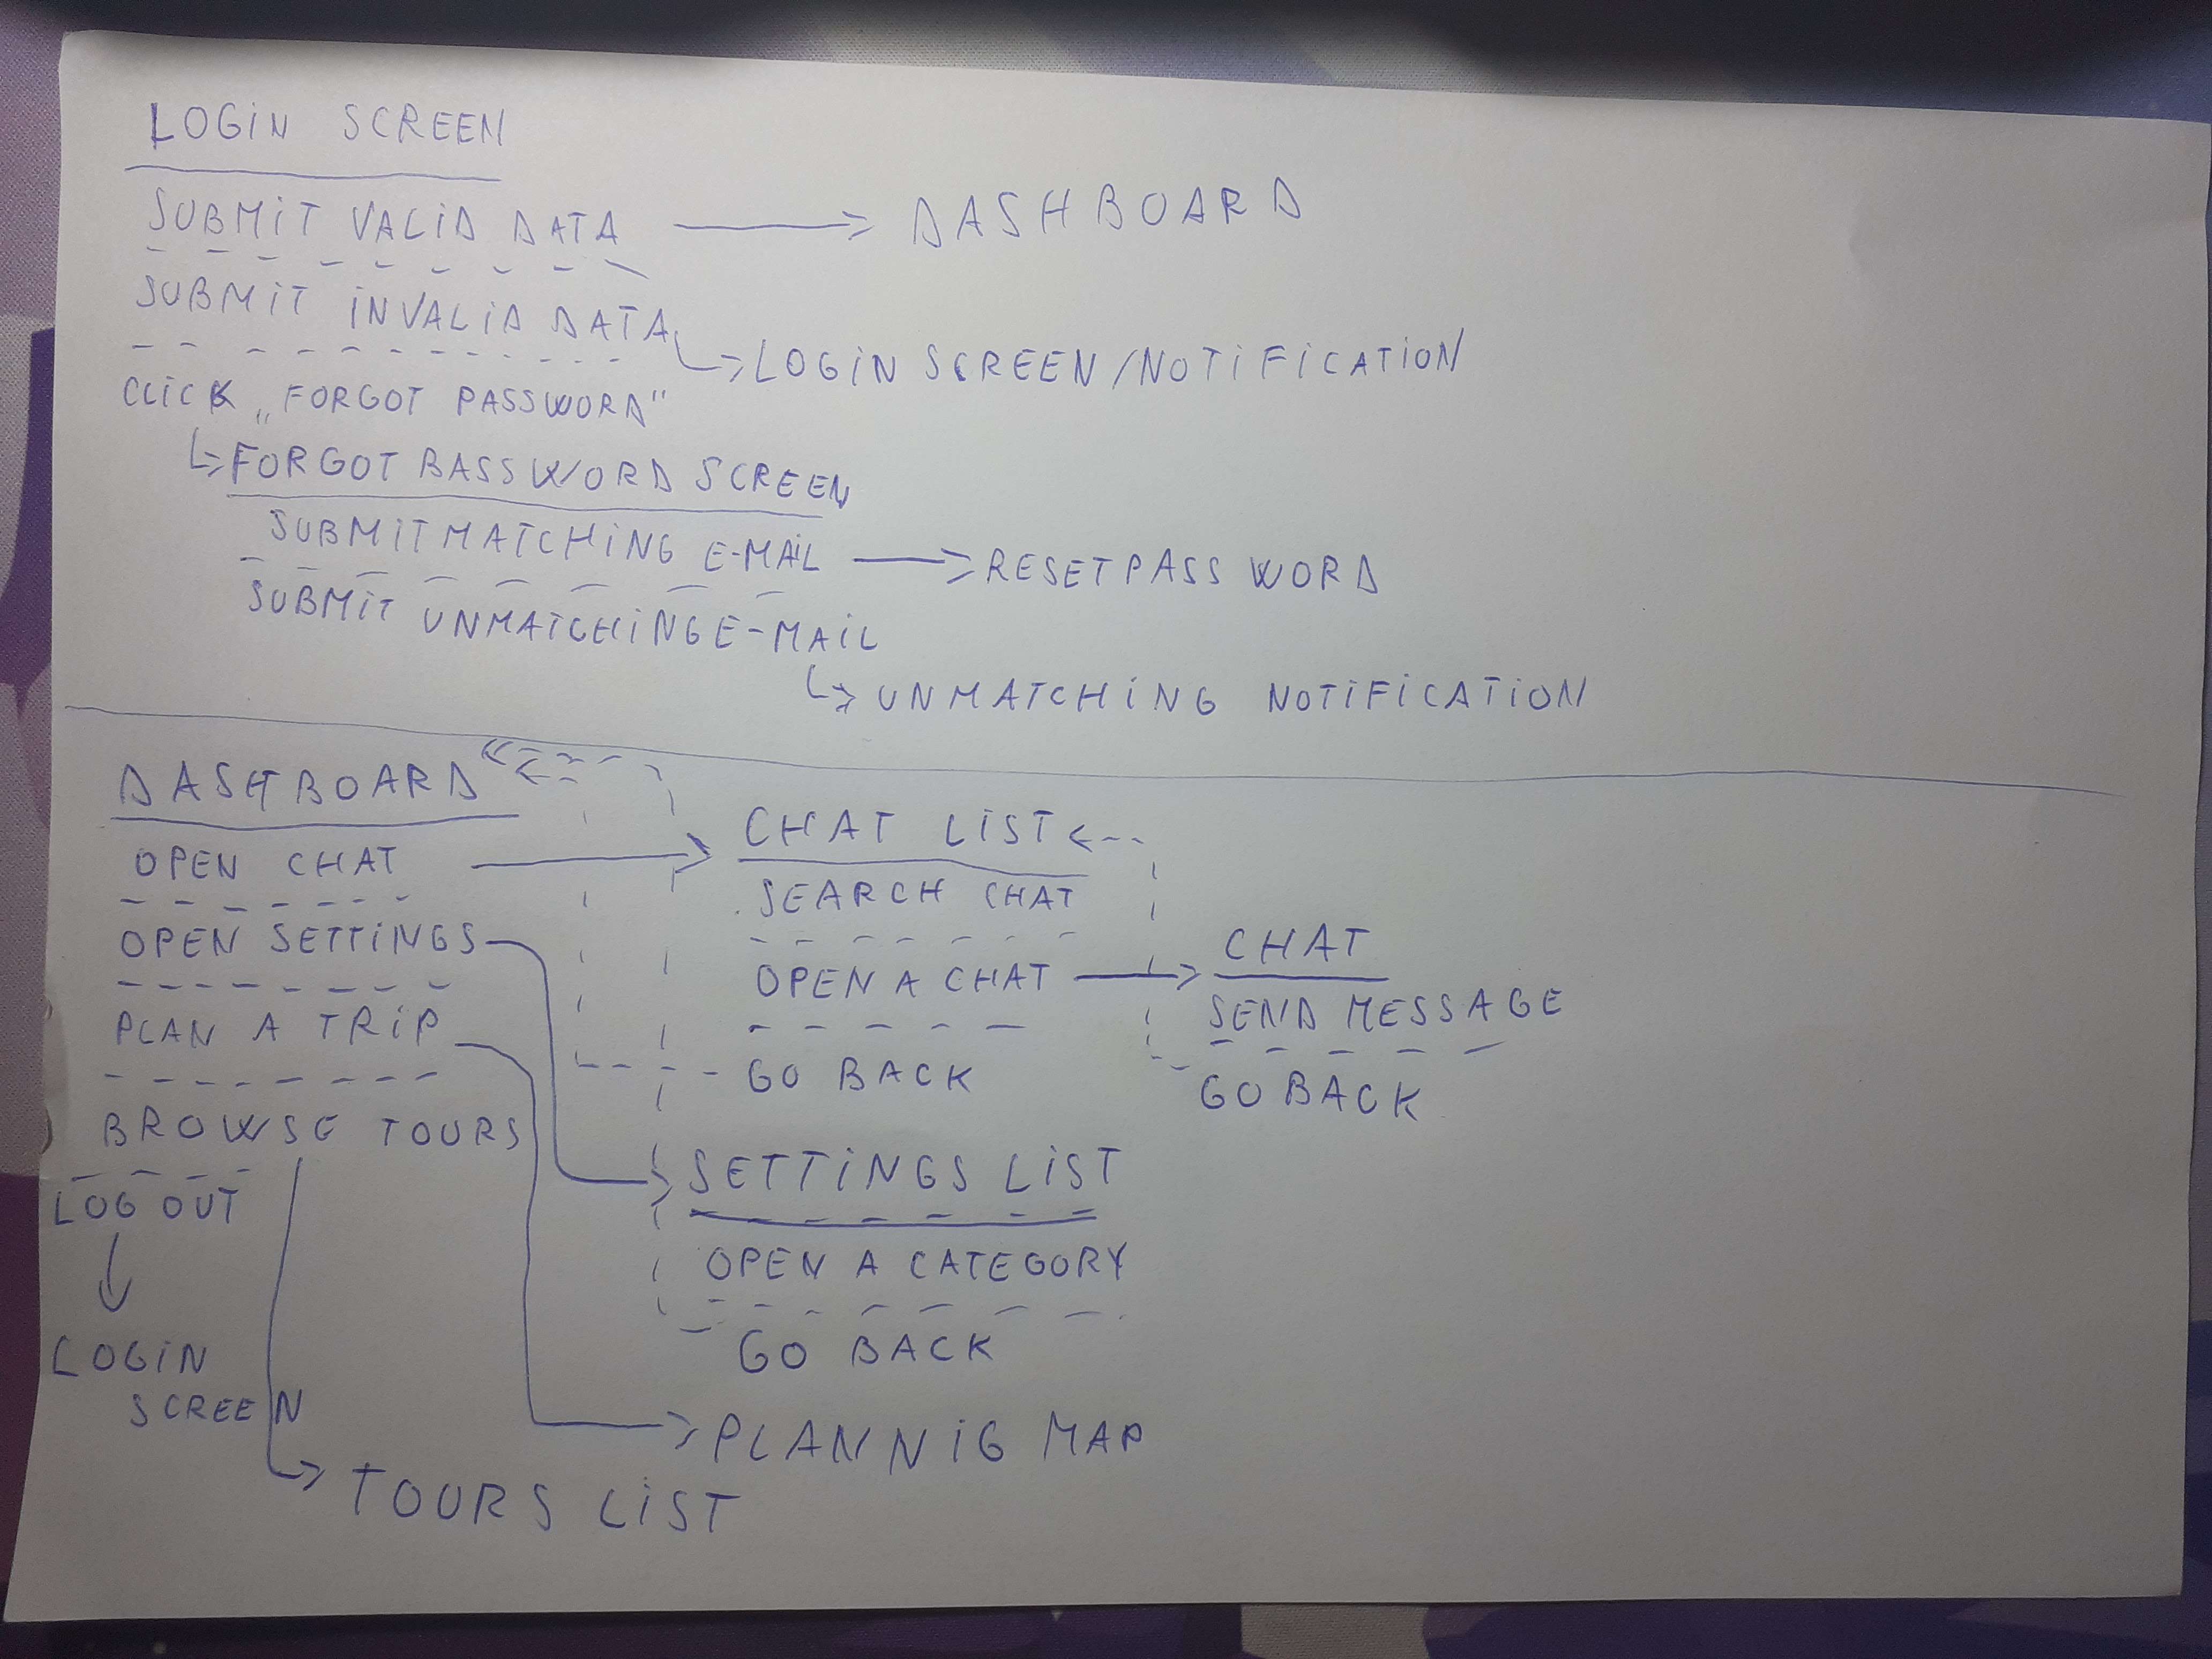 LOGIN SCREEN
SUBMIT VALID DATA → DASHBOARD
SUBMIT INVALID DATA
↳ LOGIN SCREEN/NOTIFICATION
CLICK „FORGOT PASSWORD"
↳ FORGOT BASSWORD SCREEN
SUBMIT MATCHING E-MAIL → RESET PASSWORD
SUBMIT UNMATCHING E-MAIL
↳ UNMATCHING NOTIFICATION
DASHBOARD
OPEN CHAT
OPEN SETTINGS
PLAN A TRIP
BROWSE TOURS
LOG OUT
LOGIN
SCREEN
CHAT LIST
SEARCH CHAT
OPEN A CHAT
GO BACK
CHAT
SEND MESSAGE
GO BACK
SETTINGS LIST
OPEN A CATEGORY
GO BACK
PLANNIG MAP
TOURS LIST